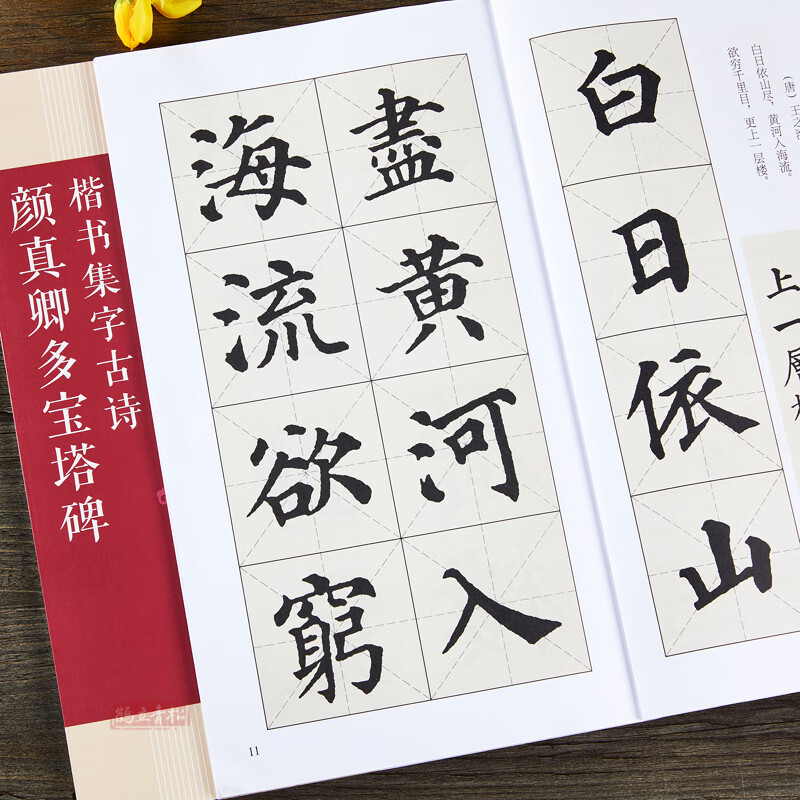 楷书集字古诗
颜真卿多宝塔碑
白日依山
盡黄河入
海流欲窮
（唐）王之
白日依山尽，黄河入海流。
欲穷千里目，更上一层楼。
上一層
11
鹤立青松